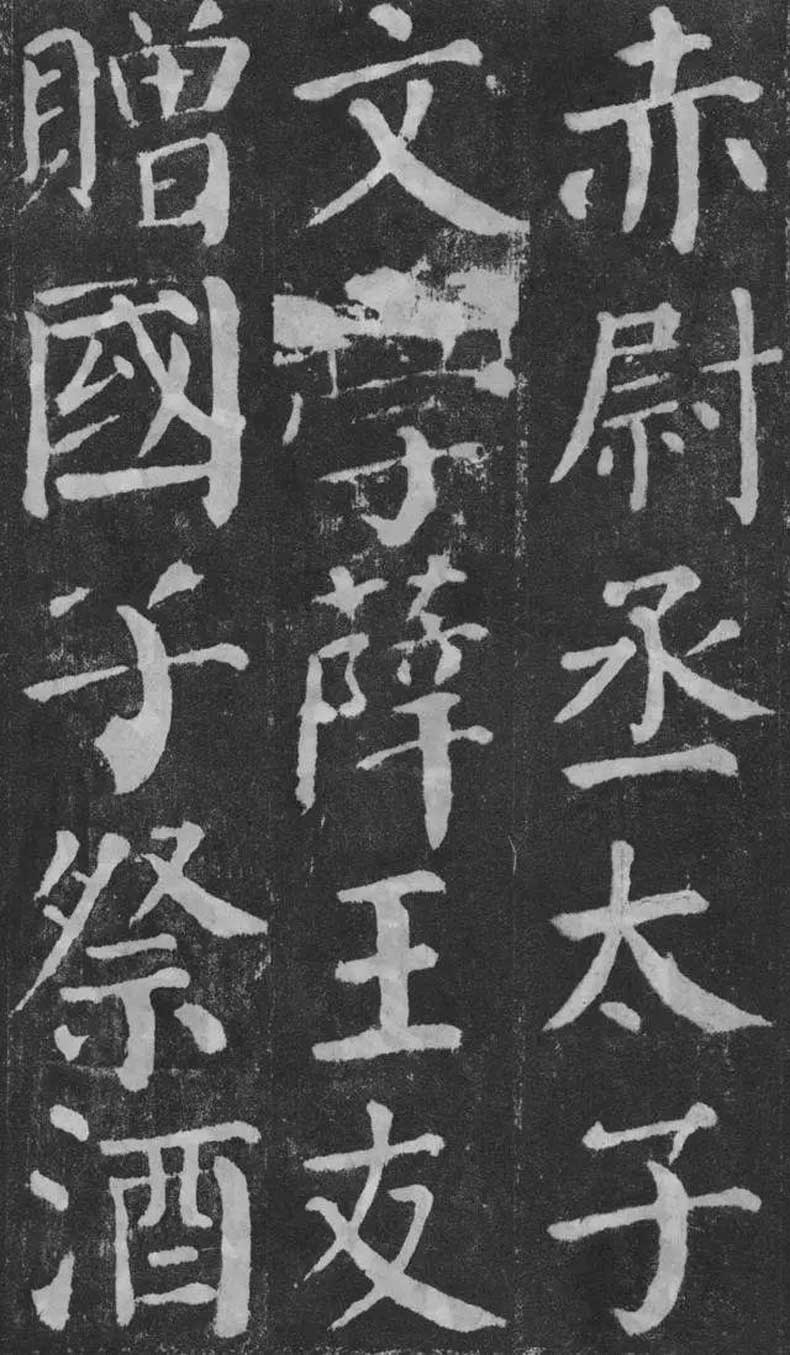 赤尉丞太子
文学薛王友
贈國子祭酒